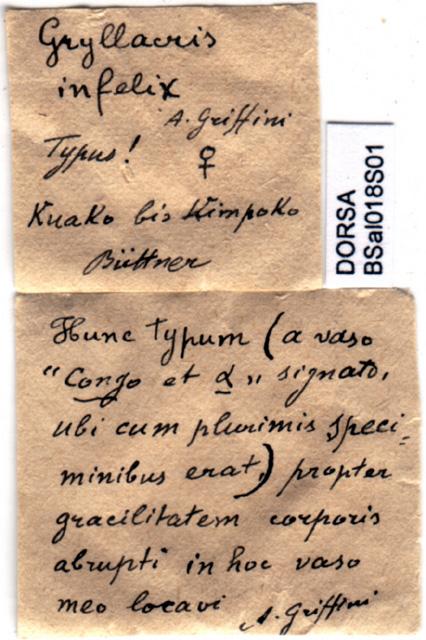 Gryllacris
infelix
A. Griffini
Typus! ♀
Kuako bis Kimpoko
Büttner
DORSA
BSal018S01
Hunc typum (a vaso
"Congo et α„ signato,
ubi cum plurimis speci=
minibus erat,) propter
gracilitatem corporis
abrupti in hoc vaso
meo locavi A. Griffini